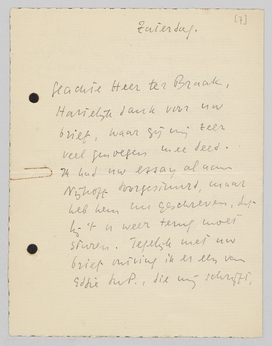 Zaterdag.
[7]
Geachte Heer ter Braak,
Hartelijk dank voor uw
brief, waar gij mij zeer
veel genoegen mee deed.
Ik had uw essay al aan
Nijhoff doorgestuurd, maar
heb hem nu geschreven, dat
hij 't u weer terug moet
sturen. Tegelijk met uw
brief ontving ik er een van
Eddie du P., die mij schrijft,